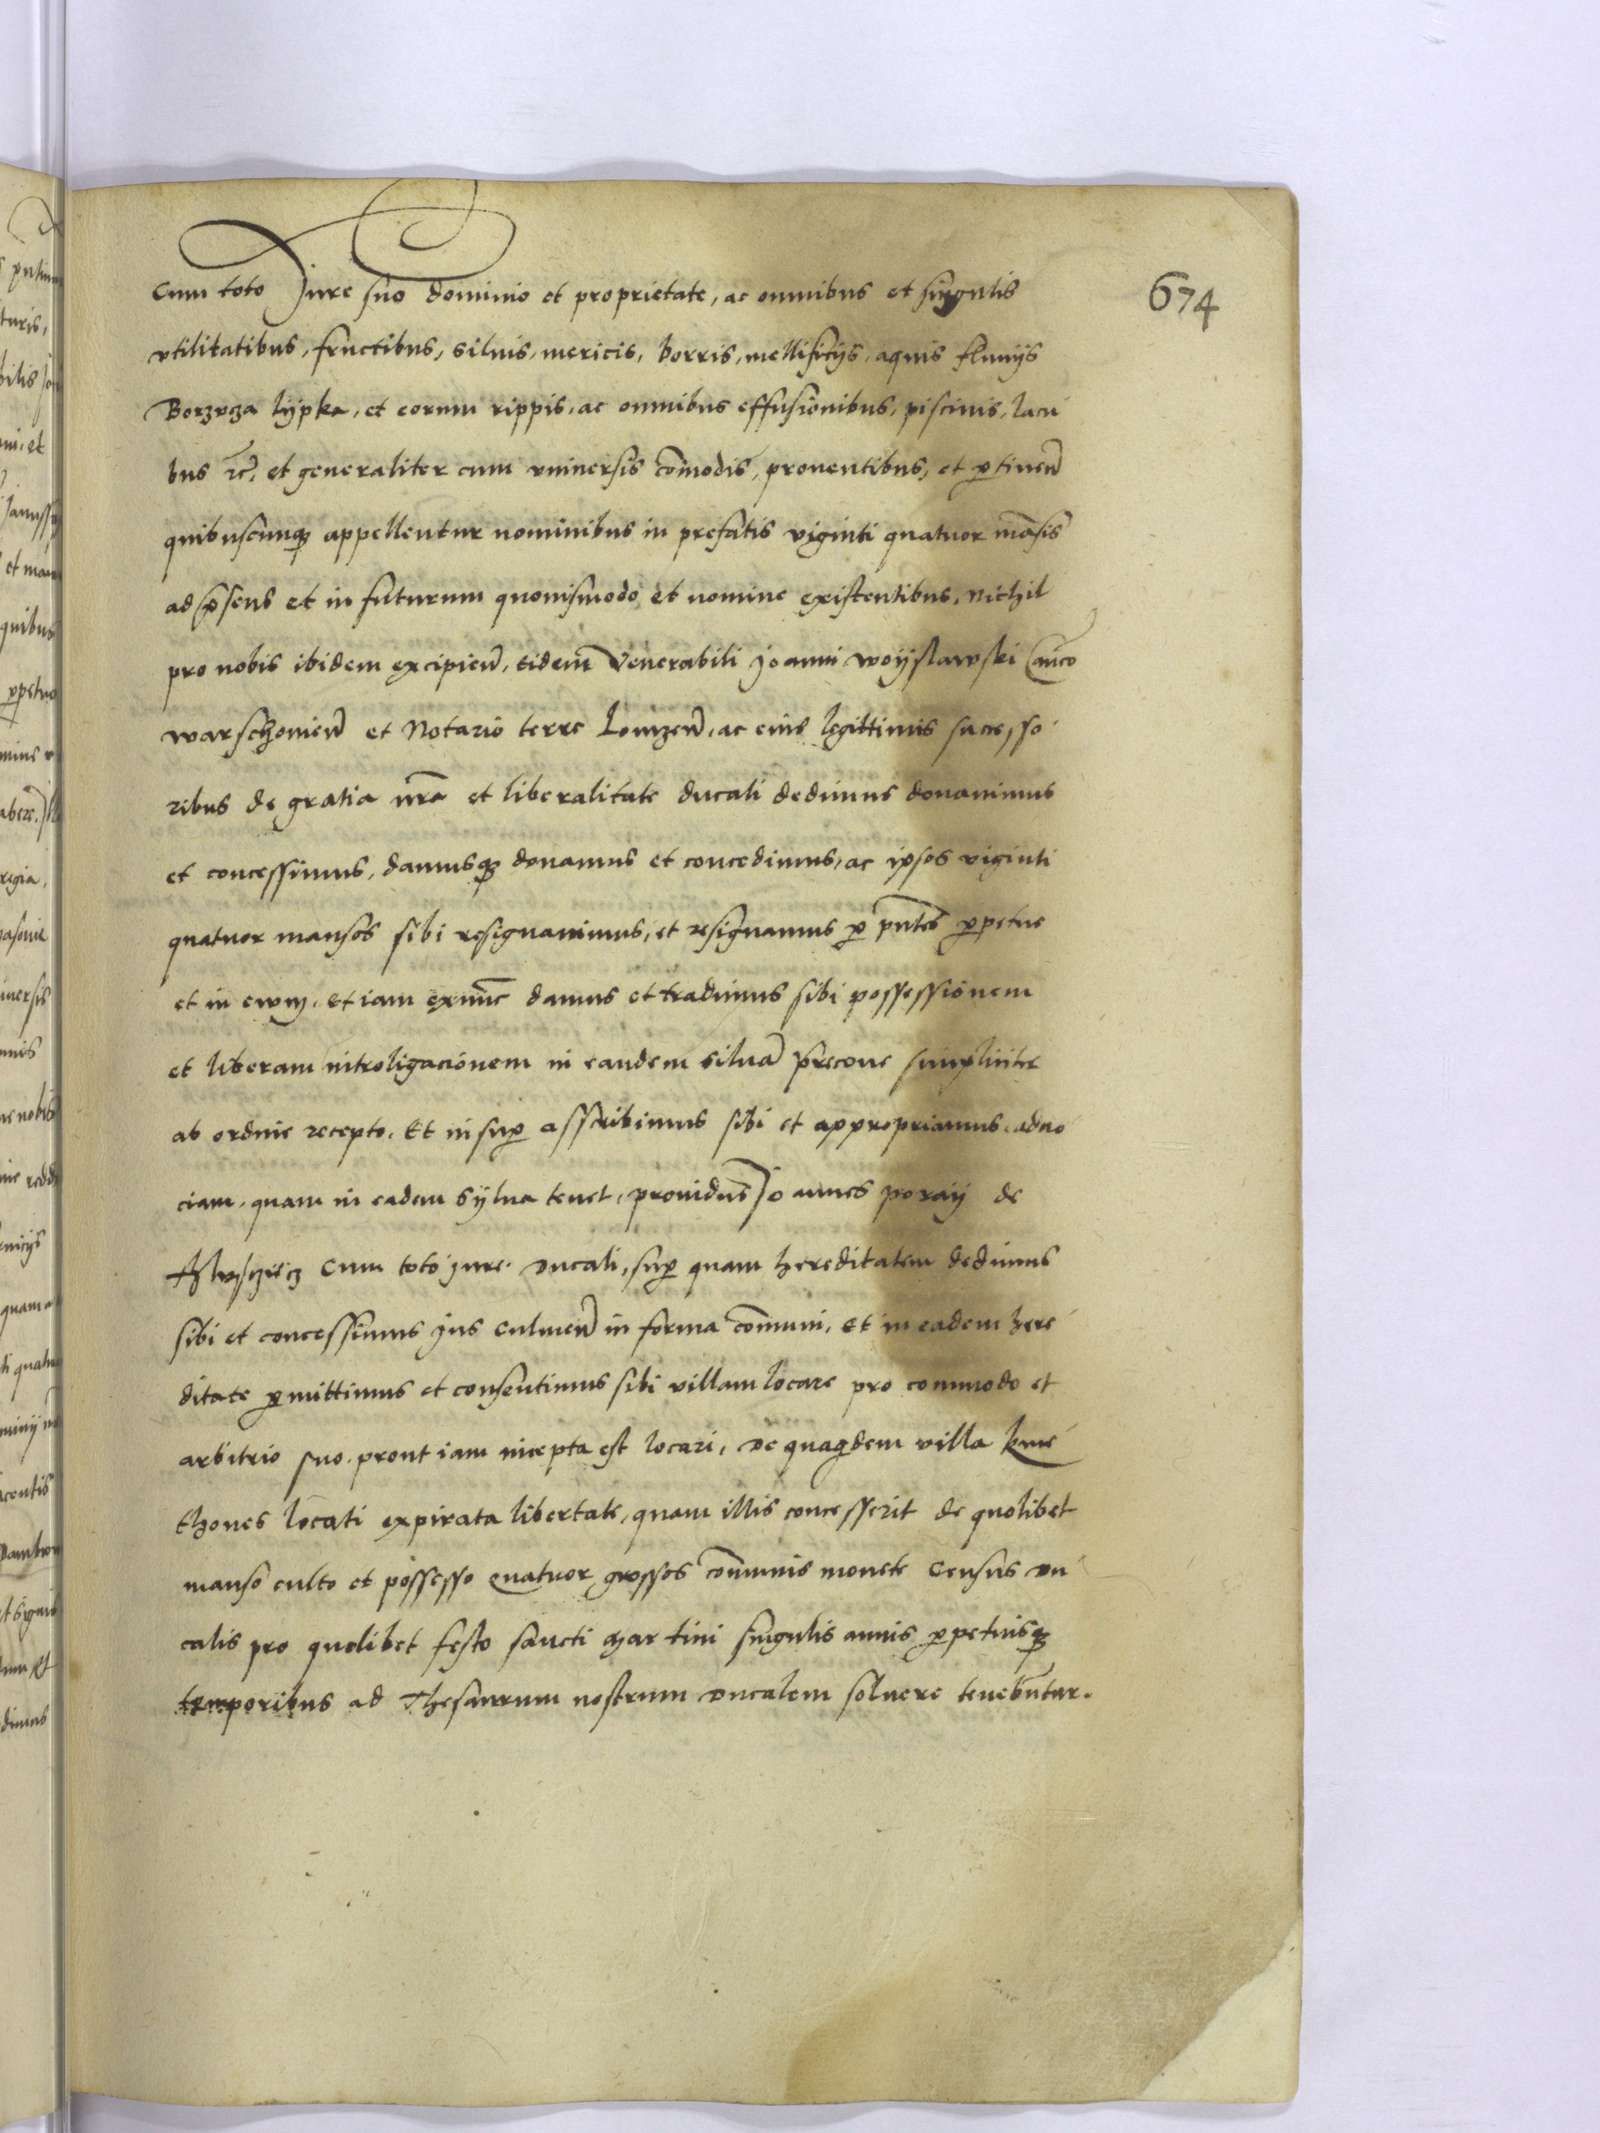 674
cum toto Jure suo dominio et proprietate, ac omnibus et singulis
vtilitatibus, fructibus, siluis, mericis, borris, mellificijs, aquis fluuijs
Borzvcza lypka, et eorum rippis, ac omnibus effusionibus, piscinis, lacu
bus etc. et generaliter cum vniuersis com̄odis, prouentibus, et ꝑtinen̄
quibuscunqꝫ appellentur nominibus in prefatis viginti quatuor māsis
ad p̄sens et in futurum quouismodo et nomine existentibus, nichil
pro nobis ibidem excipien̄, eidem Venerabili Joanni Woyslawski Canco
warschouien̄ et Notario terre Lomzen̄, ac eius legittimis successo
ribus de gratia nr̄a et liberalitate ducali dedimus donauimus
et concessimus, damusqꝫ donamus et concedimus, ac ipsos viginti
quatuor mansos sibi resignauimus, et resignamus ꝑ pn̄tes ꝑpetue
et in ewm, et iam exnūc damus et tradimus sibi possessionem
et liberam intro ligacionem in eandem siluā precone simpliciter
ab ordine recepto. Et insuꝑ asscribimus sibi et appropriamus aduo
ciam, quam in eadem sylua tenet, prouidus Joannes poray de
cum toto jure ducali, suꝑ quam hereditatem dedimus
sibi et concessimus jus culmen̄ in forma com̄uni, et in eadem here
ditate ꝑmittimus et consentimus sibi villam locare pro commodo et
arbitrio suo prout iam incepta est locari, de quaqdem villa kme
thones locati expirata libertate, quam illis concesserit de quolibet
manso culto et possesso quatuor grossos com̄unis monete census du
calis pro quolibet festo sancti Martini singulis annis ꝑpetuisqꝫ
temporibus ad Thesaurum nostrum ducalem soluere tenebuntur.